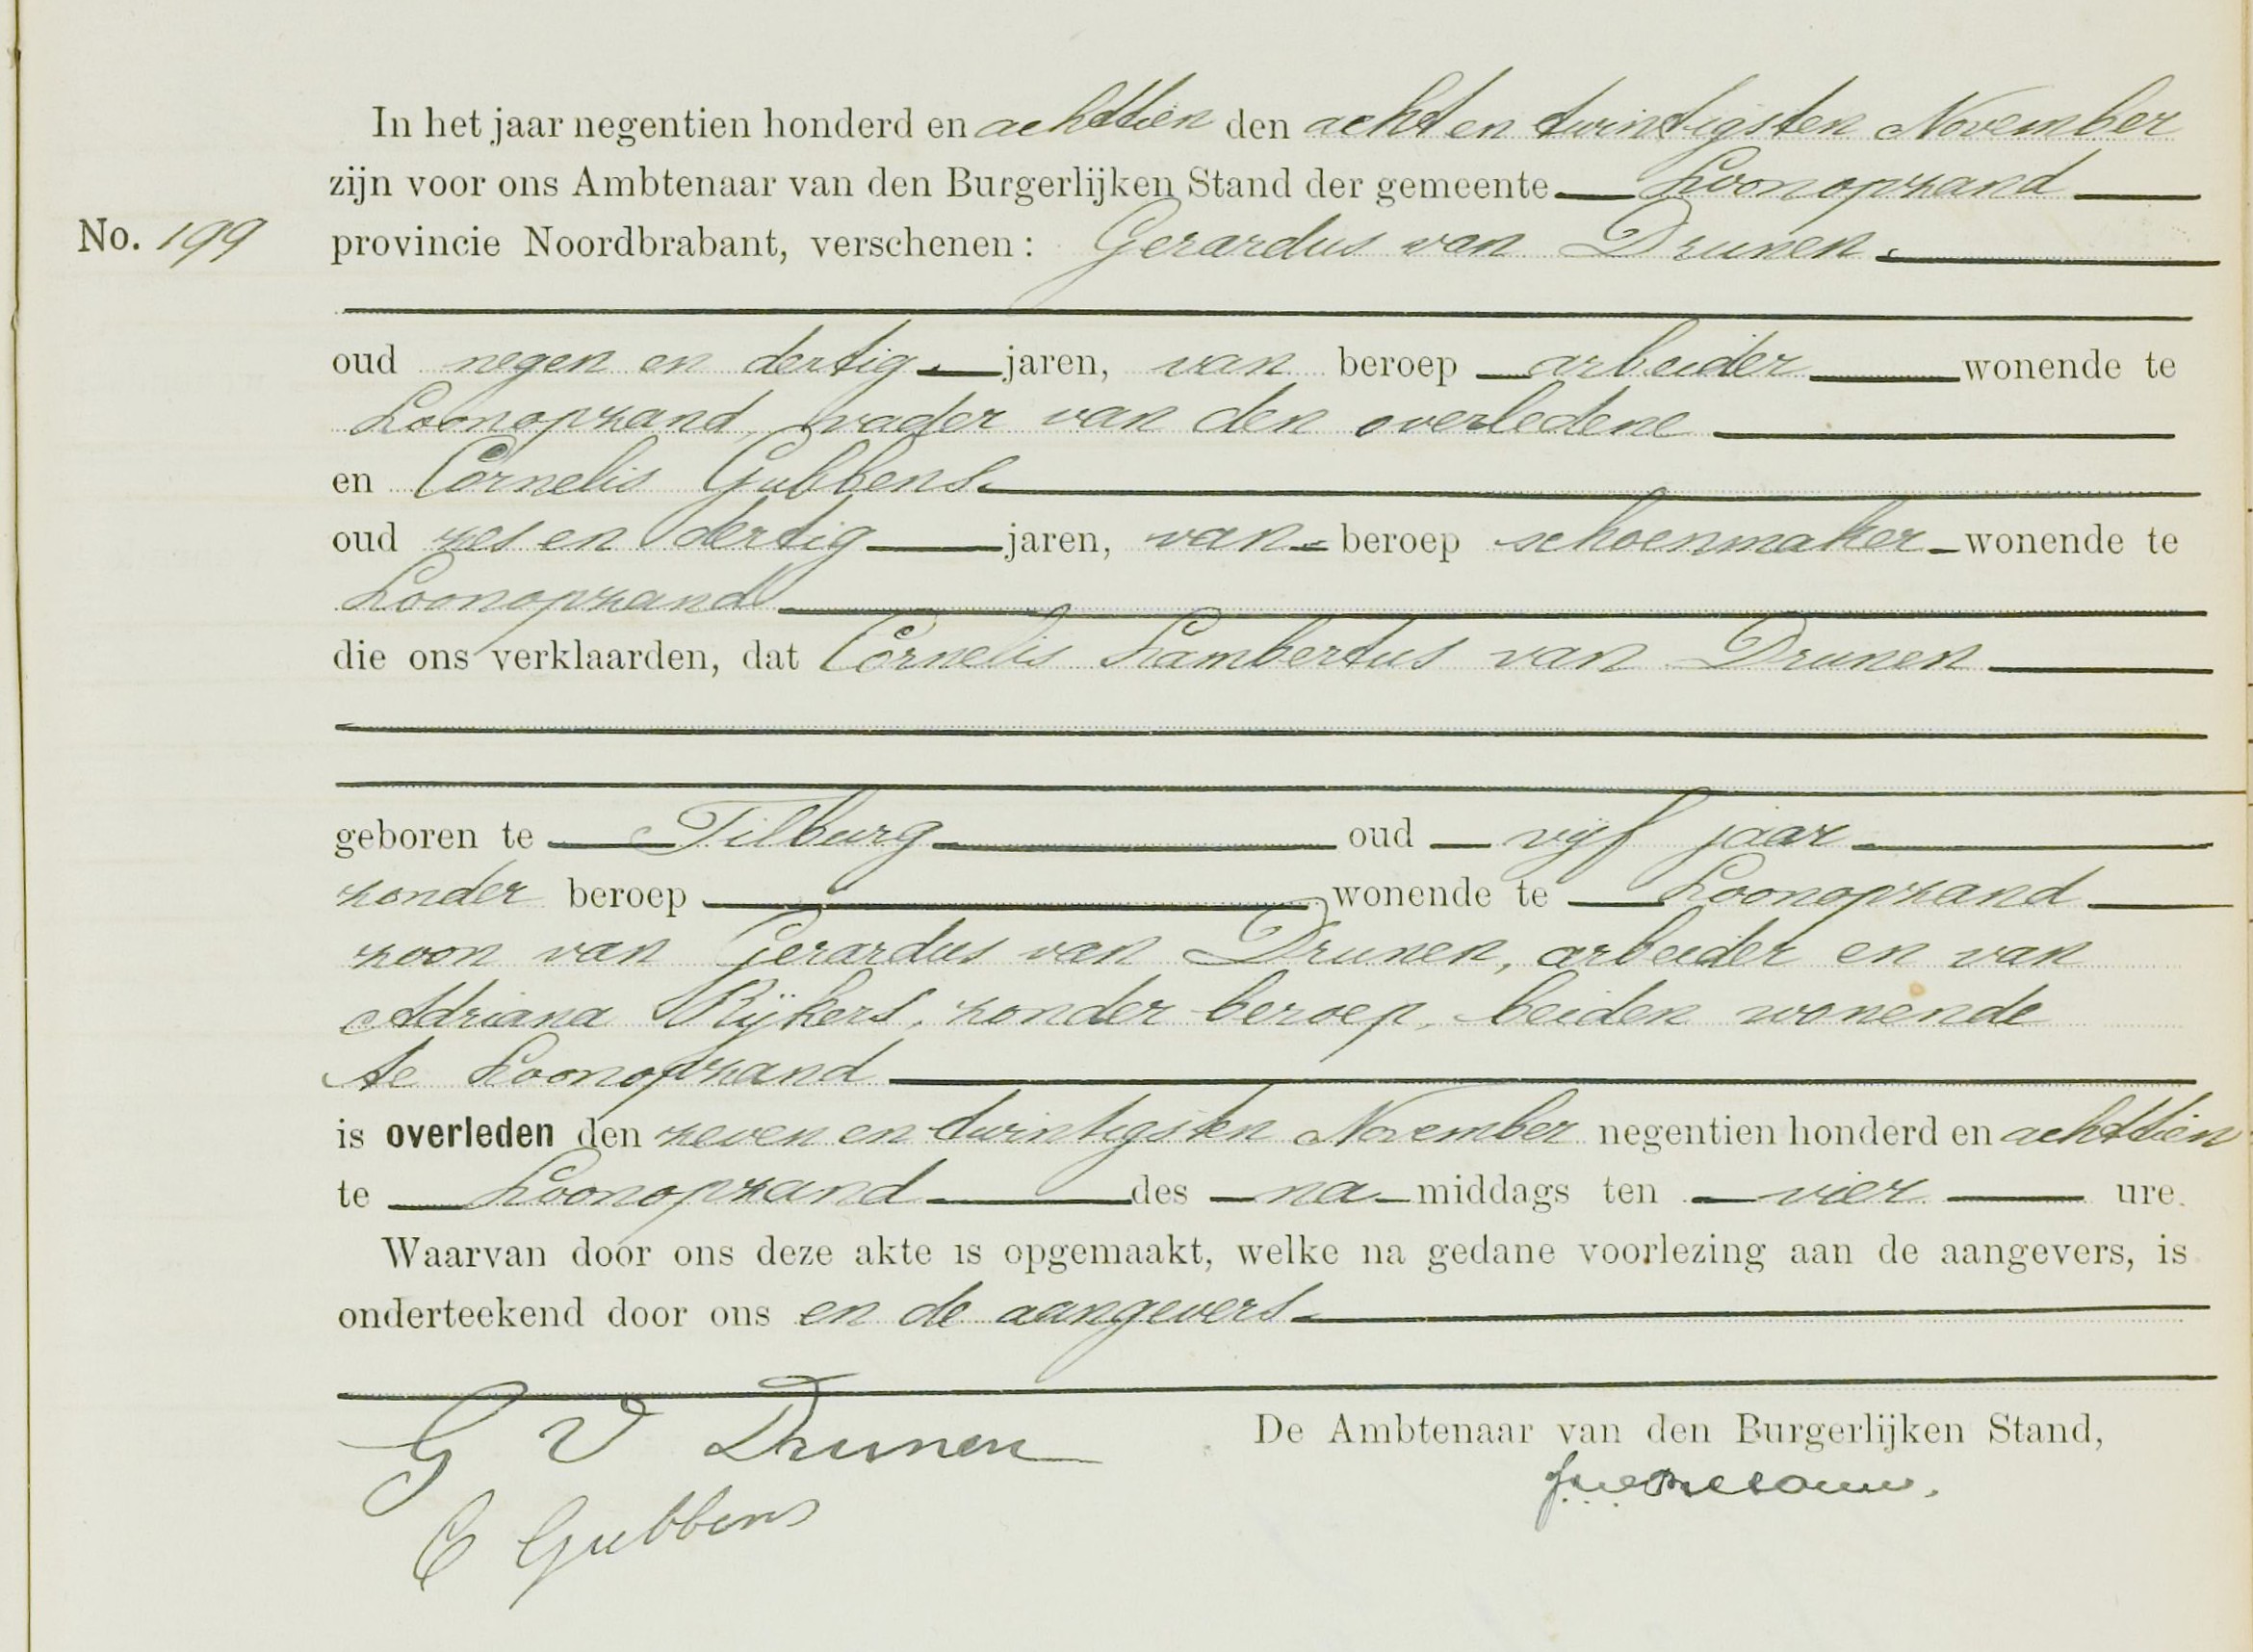 In het jaar negentien honderd en achttien den acht en twintigsten November
zijn voor ons Ambtenaar van den Burgerlijken Stand der gemeente Loonopzand
No. 199 provincie Noordbrabant, verschenen: Gerardus van Drunen.
oud negen en dertig jaren, van beroep arbeider wonende te
Loonopzand, vader van den overledene
en Cornelis Gubbens
oud zes en dertig jaren, van beroep schoenmaker wonende te
Loonopzand
die ons verklaarden, dat Cornelis Lambertus van Drunen
geboren te Tilburg oud vijf jaar
zonder beroep wonende te Loonopzand
zoon van Gerardus van Drunen, arbeider en van
Adriana Rijkers, zonder beroep, beiden wonende
te Loonopzand
is overleden den zeven en twintigsten November negentien honderd en achttien
te Loonopzand des na middags ten vier ure.
Waarvan door ons deze akte is opgemaakt, welke na gedane voorlezing aan de aangevers, is
onderteekend door ons en de aangevers
G V Drunen
De Ambtenaar van den Burgerlijken Stand,
C Gubbens